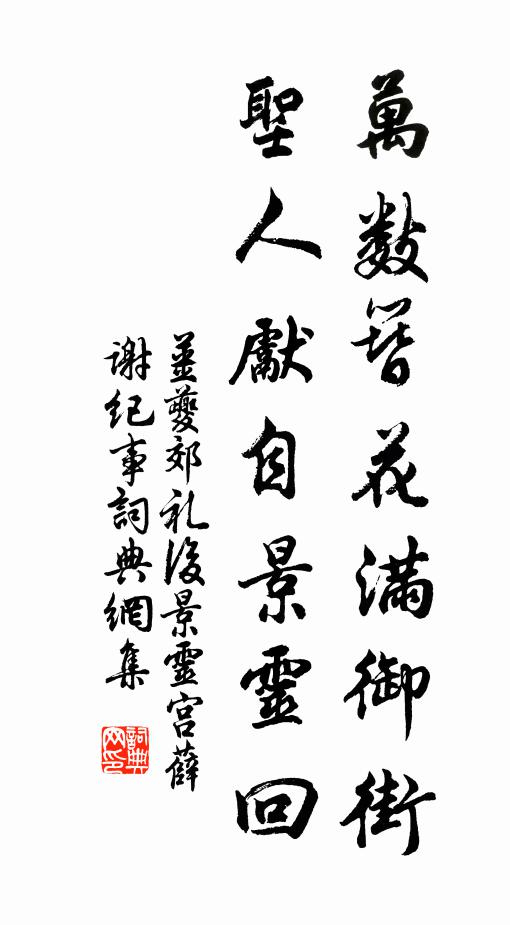 萬數簪花滿御街
聖人獻自景靈回
姜夔郊礼後景靈宮薛
謝紀事詞典網集
詞典
网印